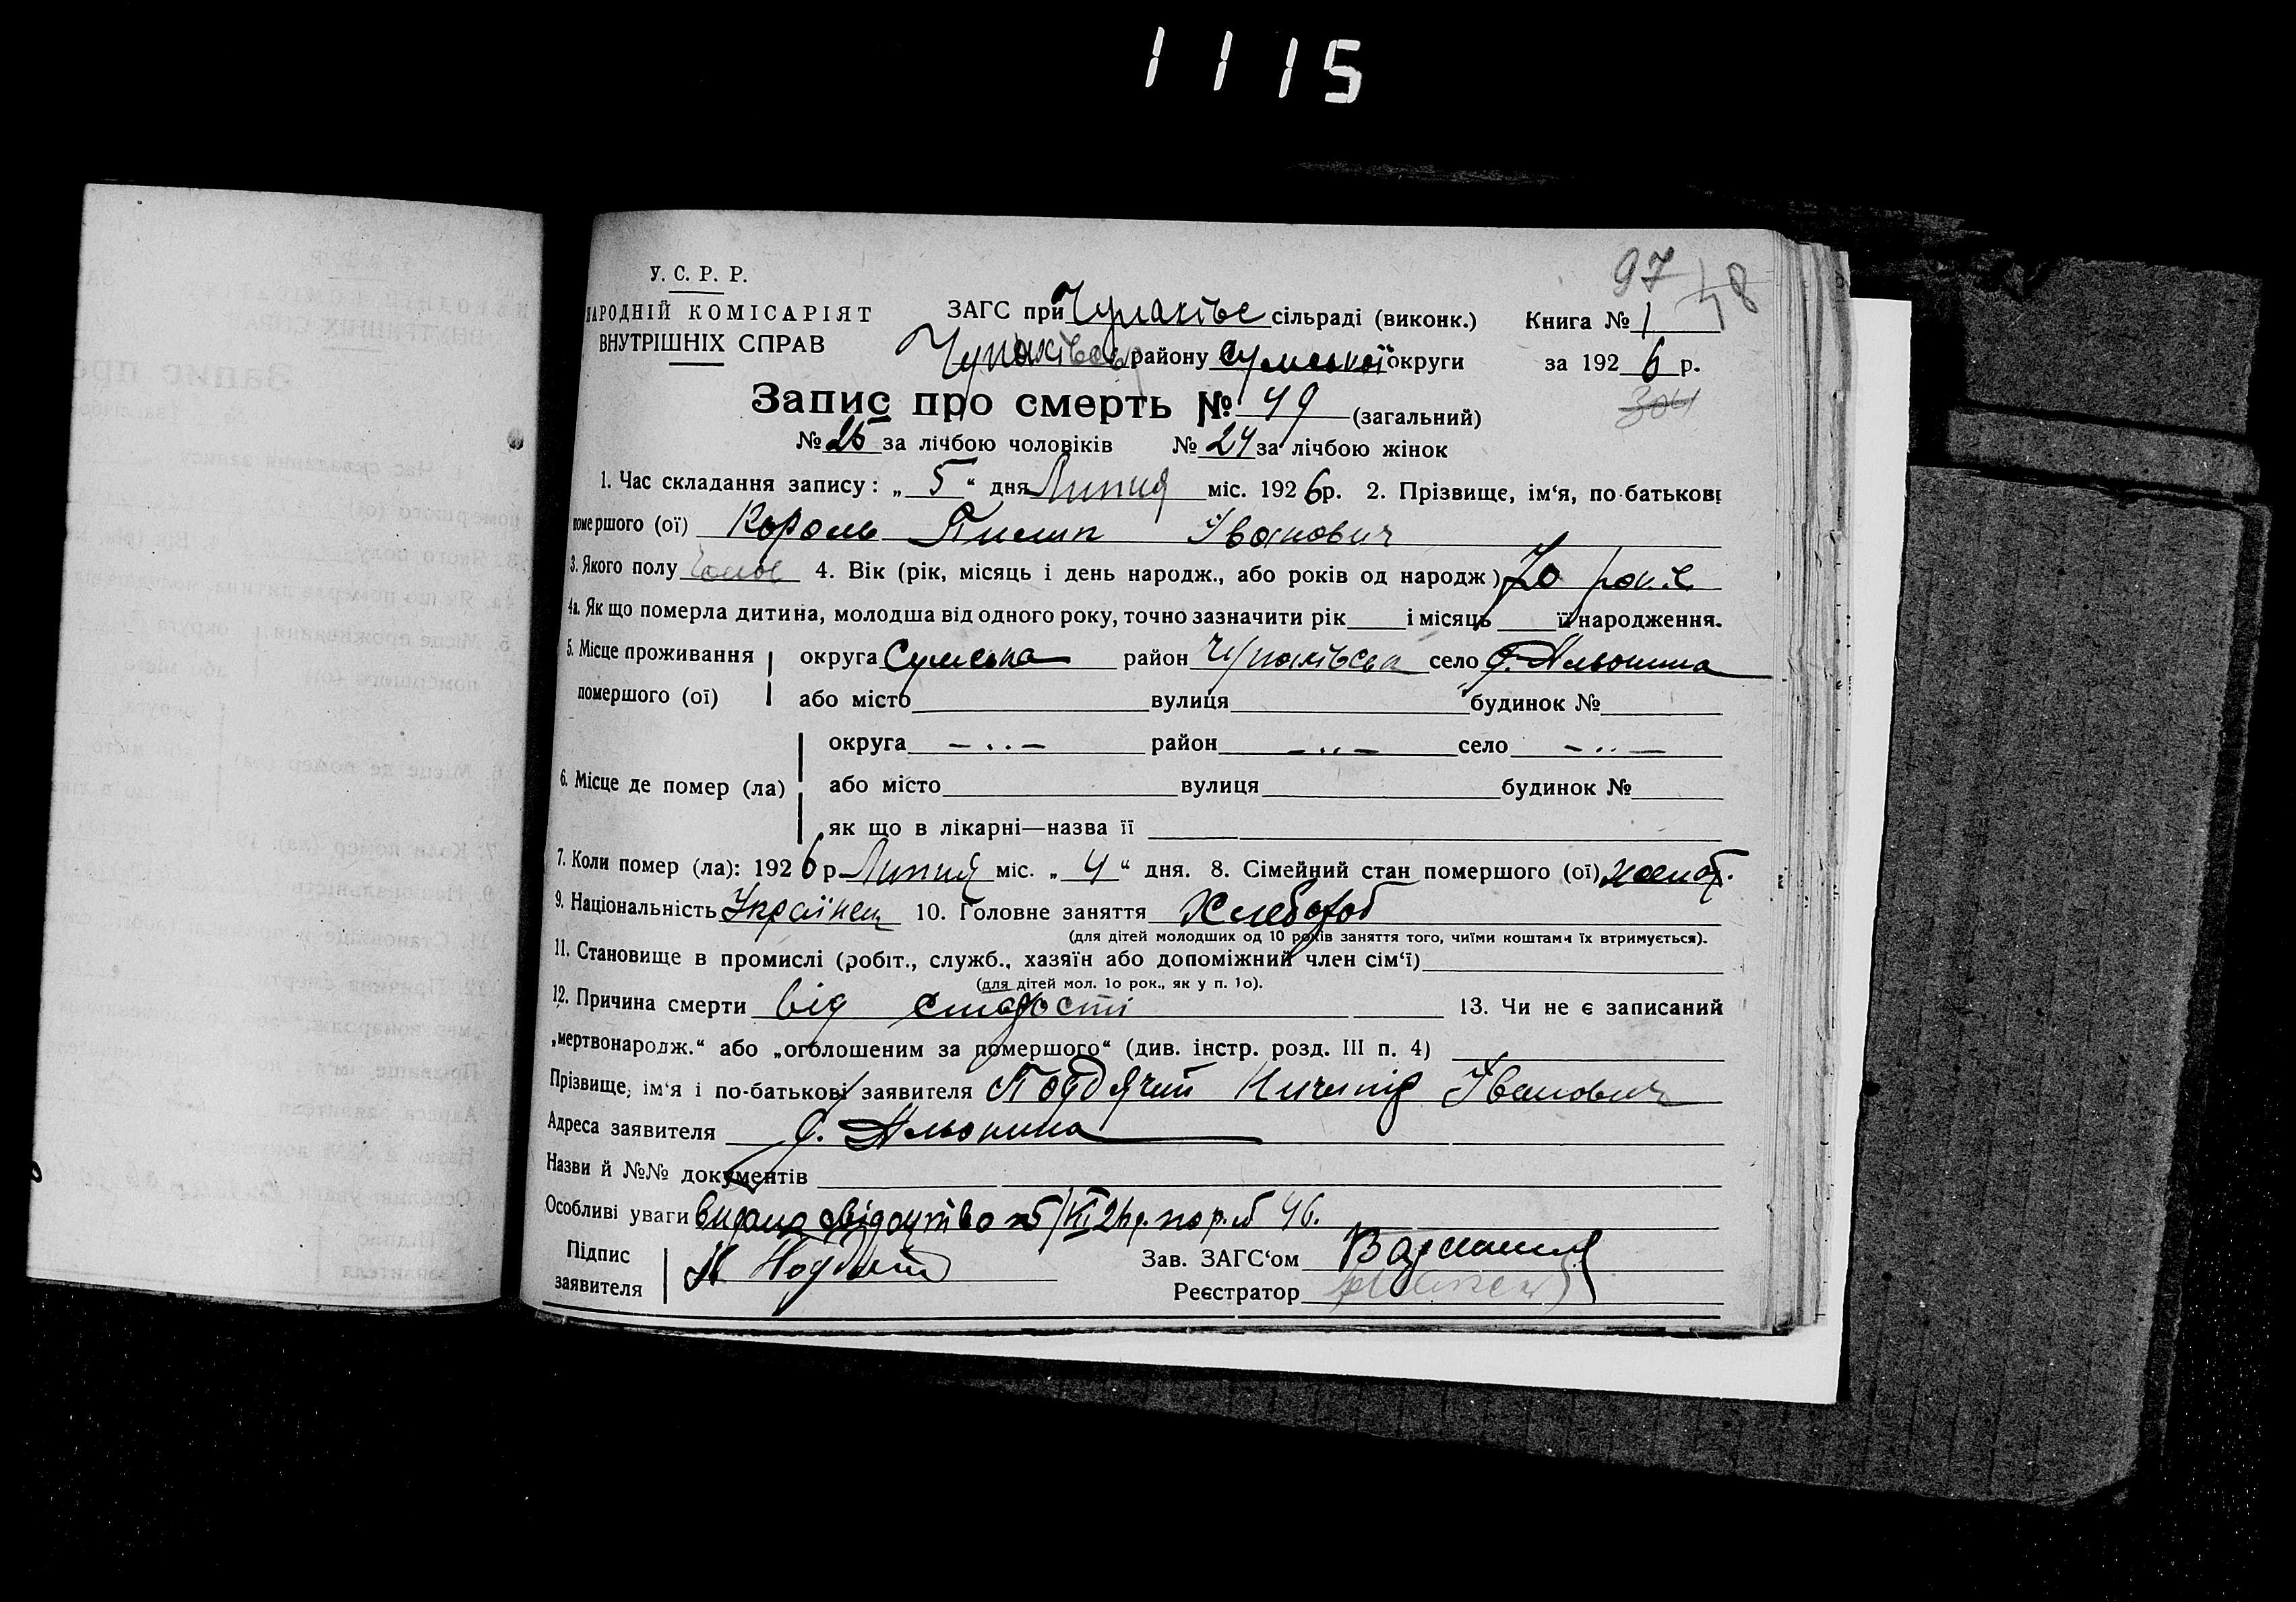 1115
97 48
У. С. Р. Р.
НАРОДНІЙ КОМІСАРІЯТ
ВНУТРІШНІХ СПРАВ
ЗАГС при Чупахівс сільраді (виконк.) Книга № 1
Чупахівськ району Сумської округи за 1926 р.
Запис про смерть № 49 (загальний) 304
№ 25 за лічбою чоловіків № 24 за лічбою жінок
1. Час складання запису: „5“ дня Липня міс. 1926р. 2. Прізвище, ім‘я, по-батькові
помершого (ої) Король Пилип Іванович
3. Якого полу 4. Вік (рік, місяць і день народж., або років од народж) 70 років
4а. Як що померла дитина, молодша від одного року, точно зазначити рік і місяць її народження.
5. Місце проживання округа Сумська район Чупахівськ село с.
помершого (ої) або місто вулиця будинок №
округа — .. — район — .. — село — .. —
6. Місце де помер (ла) або місто вулиця будинок №
як що в лікарні—назва її
7. Коли помер (ла): 1926 р Липня міс. „4“ дня. 8. Сімейний стан помершого (ої) жонат.
9. Національність Українец 10. Головне заняття Хлебороб
(для дітей молодших од 10 років заняття того, чиїми коштами їх втримується).
11. Становище в промислі (робіт., служб., хазяїн або допоміжний член сім‘ї)
(для дітей мол. 1о рок., як у п. 1о).
12. Причина смерти від старости 13. Чи не є записаний
„мертвонародж.“ або „оголошеним за помершого“ (див. інстр. розд. III п. 4)
Прізвище, ім‘я і по-батькові заявителя Ничипір Іванович
Адреса заявителя
Назви й №№ документів
Особливі уваги видано свідоцтво 46.
Підпис
заявителя
Зав. ЗАГС‘ом
Реєстратор